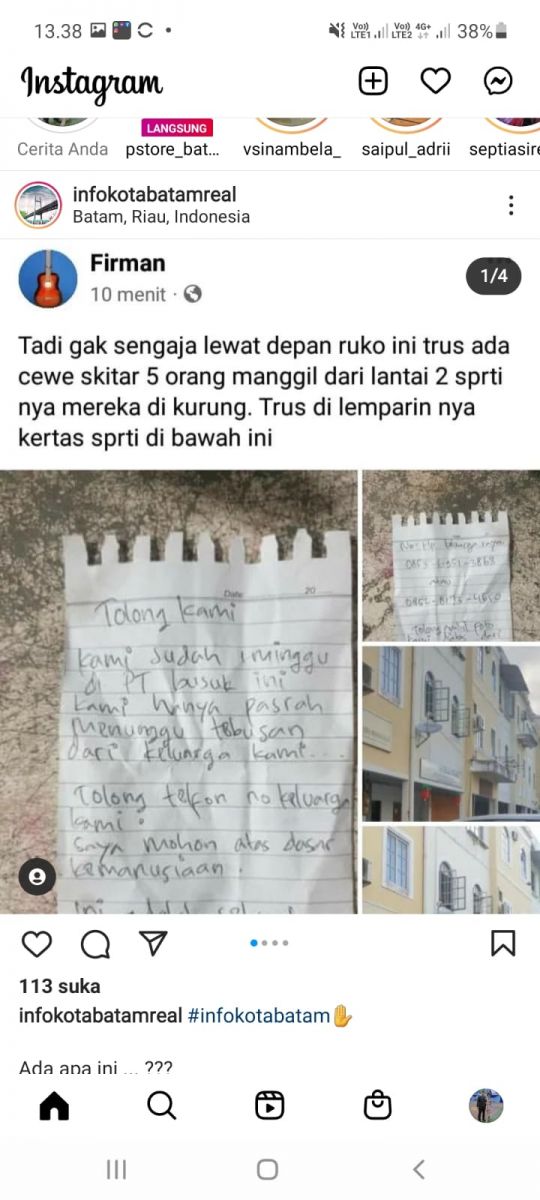 13.38
Vo)) LTE1 Vo)) LTE2 4G+ 38%
Instagram
LANGSUNG
Cerita Anda pstore_bat... vsinambela_ saipul_adrii septiasire
infokotabatamreal
Batam, Riau, Indonesia
Firman
10 menit ·
1/4
Tadi gak sengaja lewat depan ruko ini trus ada
cewe skitar 5 orang manggil dari lantai 2 sprti
nya mereka di kurung. Trus di lemparin nya
kertas sprti di bawah ini
Date 20
Tolong kami
kami sudah 1 minggu
di PT busuk ini
kami hanya pasrah
menunggu tebusan
dari keluarga kami...
Tolong telfon no keluarga
kami :
saya mohon atas dasar
kemanusiaan.
ini
No. Hp keluarga saya
113 suka
infokotabatamreal #infokotabatam✋
Ada apa ini ... ???